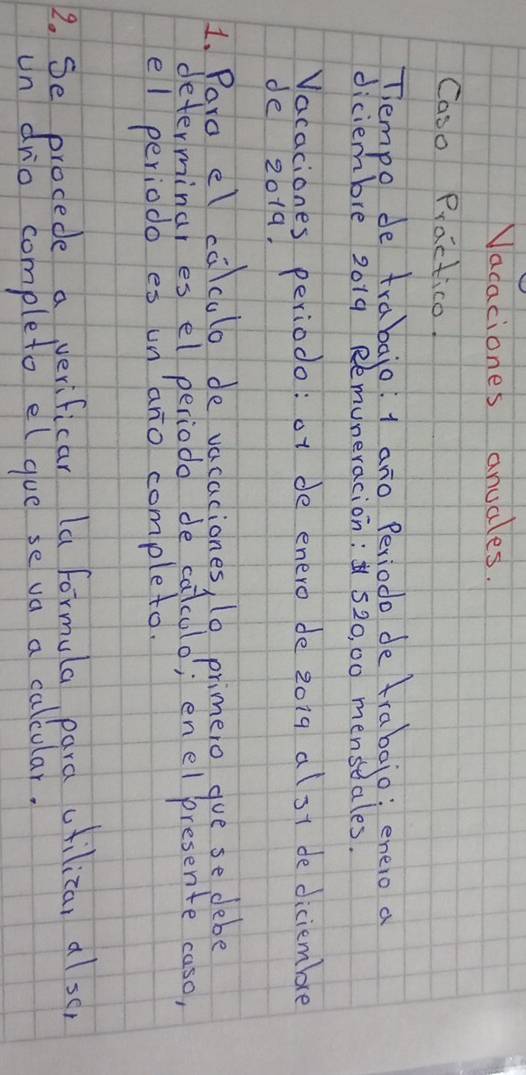 Vacaciones anuales.
Caso Práctico.
Tiempo de trabajo: 1 año Periodo de trabajo: enero a
diciembre 2019 Remuneración: $ 520,00 mensuales.
Vacaciones periodo: 01 de enero de 2019 al 31 de diciembre
de 2019.
1. Para el cálculo de vacaciones, lo primero que se debe
determinar es el periodo de cálculo; en el presente caso,
el periodo es un año completo.
2. Se procede a verificar la fórmula para utilizar al ser
un año completo el que se va a calcular.